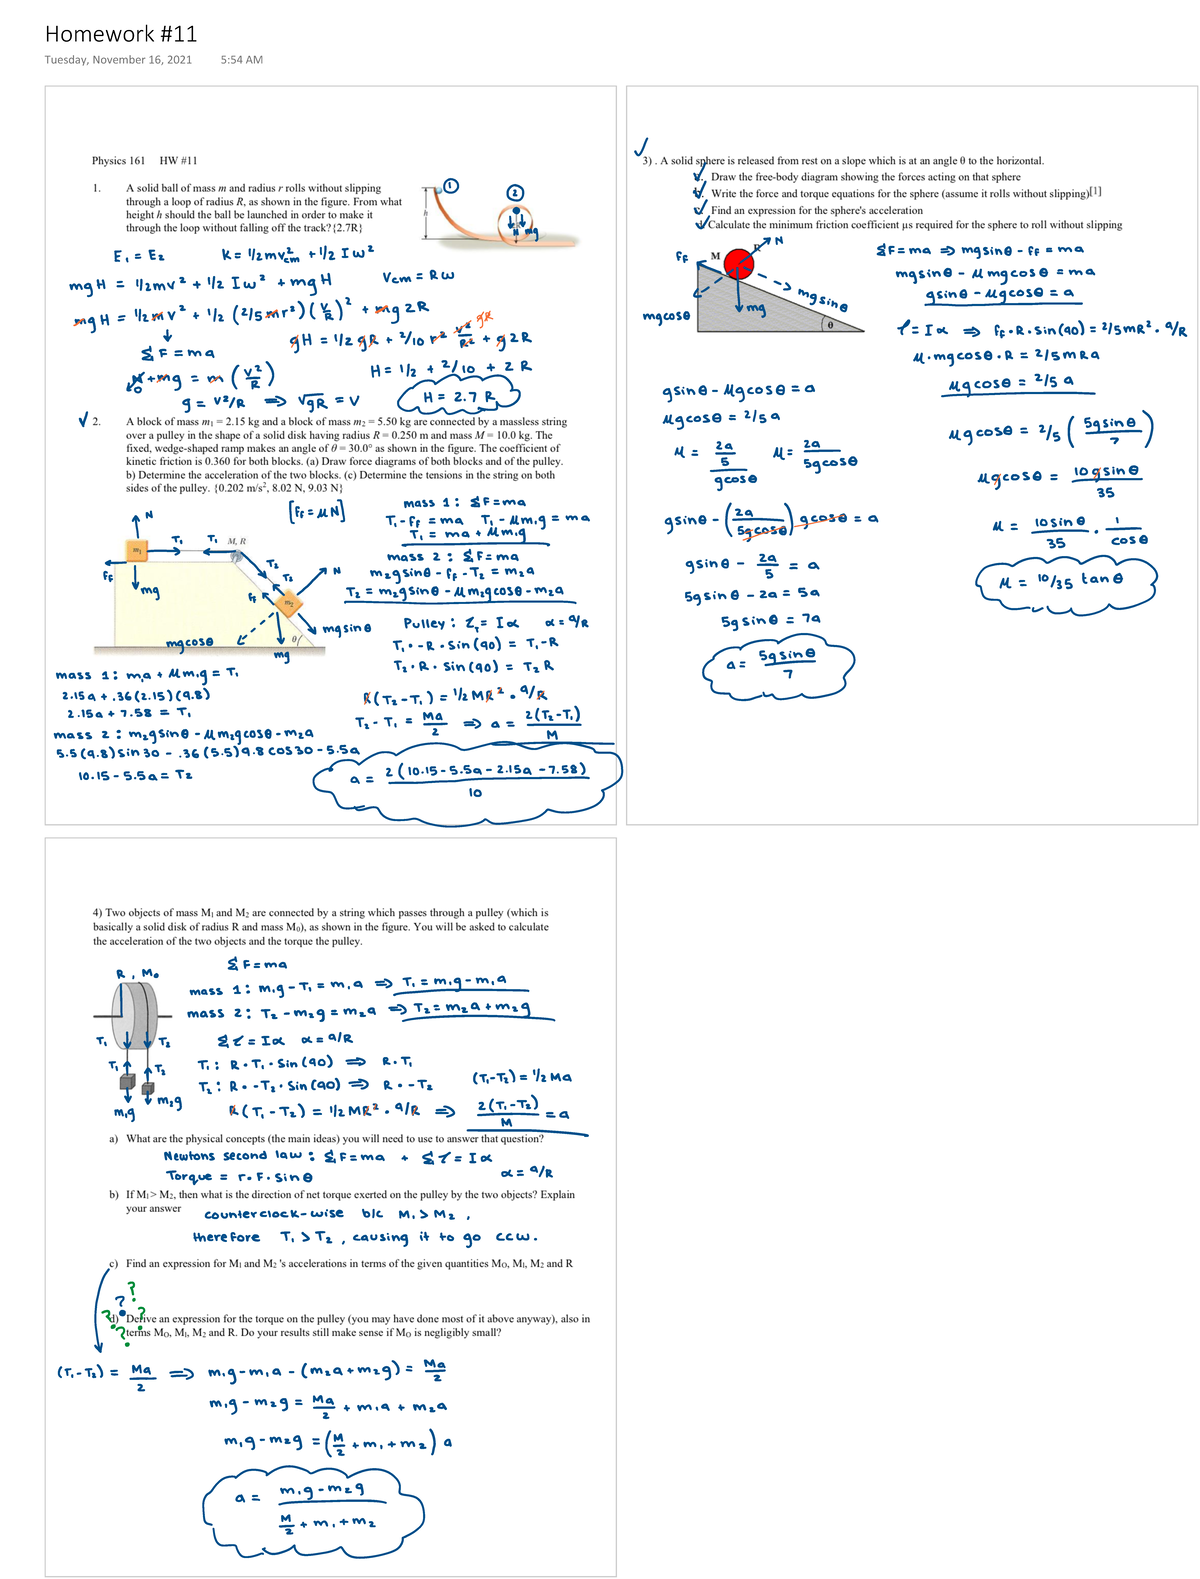 Homework #11
Tuesday, November 16, 2021 5:54 AM
Physics 161 HW #11
1. A solid ball of mass m and radius r rolls without slipping
through a loop of radius R, as shown in the figure. From what
height h should the ball be launched in order to make it
through the loop without falling off the track? {2.7R}
h
1
2
N
mg
E₁ = E₂
K = 1/2mv²cm + 1/2 Iw²
mgH = 1/2mv² + 1/2 Iw² + mgH
Vcm = Rw
mgH = 1/2mv² + 1/2 (2/5mr²)(V/R)² + mg2R
↓
ΣF = ma
gH = 1/2 gR + 2/10 r² v²/R² gR + g2R
N 0 + mg = m(v²/R)
H = 1/2 + 2/10 + 2R
g = v²/R ⇒ √gR = V
H = 2.7 R
✓ 2. A block of mass m₁ = 2.15 kg and a block of mass m₂ = 5.50 kg are connected by a massless string
over a pulley in the shape of a solid disk having radius R = 0.250 m and mass M = 10.0 kg. The
fixed, wedge-shaped ramp makes an angle of θ = 30.0° as shown in the figure. The coefficient of
kinetic friction is 0.360 for both blocks. (a) Draw force diagrams of both blocks and of the pulley.
b) Determine the acceleration of the two blocks. (c) Determine the tensions in the string on both
sides of the pulley. {0.202 m/s², 8.02 N, 9.03 N}
[Ff = μN]
mass 1: ΣF = ma
T₁ - Ff = ma T₁ - μm₁g = ma
T₁ = ma + μm₁g
mass 2: ΣF = ma
m₂gsinθ - Ff - T₂ = m₂a
T₂ = m₂gsinθ - μm₂gcosθ - m₂a
N
m₁
T₁
T₁
M, R
T₂
T₂
N
Ff
mg
Ff
m₂
θ
mgsinθ
mgcosθ
mg
Pulley: Στ = Iα α = a/R
T₁ · -R · sin(90) = T₁ - R
T₂ · R · sin(90) = T₂R
mass 1: m₁a + μm₁g = T₁
2.15a + .36(2.15)(9.8)
2.15a + 7.58 = T₁
R(T₂ - T₁) = 1/2 MR² · a/R
T₂ - T₁ = Ma/2 ⇒ a = 2(T₂ - T₁)/M
mass 2: m₂gsinθ - μm₂gcosθ - m₂a
5.5(9.8)sin30 - .36(5.5)9.8cos30 - 5.5a
10.15 - 5.5a = T₂
a = 2(10.15 - 5.5a - 2.15a - 7.58)/10
✓
3) . A solid sphere is released from rest on a slope which is at an angle θ to the horizontal.
a. Draw the free-body diagram showing the forces acting on that sphere
b. Write the force and torque equations for the sphere (assume it rolls without slipping)[1]
c. Find an expression for the sphere's acceleration
d. Calculate the minimum friction coefficient μs required for the sphere to roll without slipping
Ff
M
R
N
mgsinθ
mg
mgcosθ
θ
ΣF = ma ⇒ mgsinθ - Ff = ma
mgsinθ - μmgcosθ = ma
gsinθ - μgcosθ = a
τ = Iα ⇒ Ff · R · sin(90) = 2/5mR² · a/R
μ · mgcosθ · R = 2/5mRa
μgcosθ = 2/5 a
gsinθ - μgcosθ = a
μgcosθ = 2/5 a
μ = 2a/5/gcosθ μ = 2a/5gcosθ
gsinθ - (2a/5gcosθ) gcosθ = a
gsinθ - 2a/5 = a
5gsinθ - 2a = 5a
5gsinθ = 7a
a = 5gsinθ/7
μgcosθ = 2/5 (5gsinθ/7)
μgcosθ = 10gsinθ/35
μ = 10sinθ/35 · 1/cosθ
μ = 10/35 tanθ
4) Two objects of mass M₁ and M₂ are connected by a string which passes through a pulley (which is
basically a solid disk of radius R and mass M₀), as shown in the figure. You will be asked to calculate
the acceleration of the two objects and the torque the pulley.
R, M₀
ΣF = ma
mass 1: m₁g - T₁ = m₁a ⇒ T₁ = m₁g - m₁a
mass 2: T₂ - m₂g = m₂a ⇒ T₂ = m₂a + m₂g
T₁
T₂
T₁
T₂
m₁g
m₂g
Στ = Iα α = a/R
T₁: R · T₁ · sin(90) ⇒ R · T₁
T₂: R · -T₂ · sin(90) ⇒ R · -T₂
(T₁ - T₂) = 1/2 Ma
R(T₁ - T₂) = 1/2 MR² · a/R ⇒ 2(T₁ - T₂)/M = a
a) What are the physical concepts (the main ideas) you will need to use to answer that question?
Newtons second law: ΣF = ma + Στ = Iα
Torque = r · F · sinθ α = a/R
b) If M₁> M₂, then what is the direction of net torque exerted on the pulley by the two objects? Explain
your answer
counterclock-wise b/c M₁ > M₂,
therefore T₁ > T₂, causing it to go ccw.
c) Find an expression for M₁ and M₂ 's accelerations in terms of the given quantities M₀, M₁, M₂ and R
? ? ? ? ?
d) Derive an expression for the torque on the pulley (you may have done most of it above anyway), also in
terms M₀, M₁, M₂ and R. Do your results still make sense if M₀ is negligibly small?
(T₁ - T₂) = Ma/2 ⇒ m₁g - m₁a - (m₂a + m₂g) = Ma/2
m₁g - m₂g = Ma/2 + m₁a + m₂a
m₁g - m₂g = (M/2 + m₁ + m₂) a
a = m₁g - m₂g/M/2 + m₁ + m₂